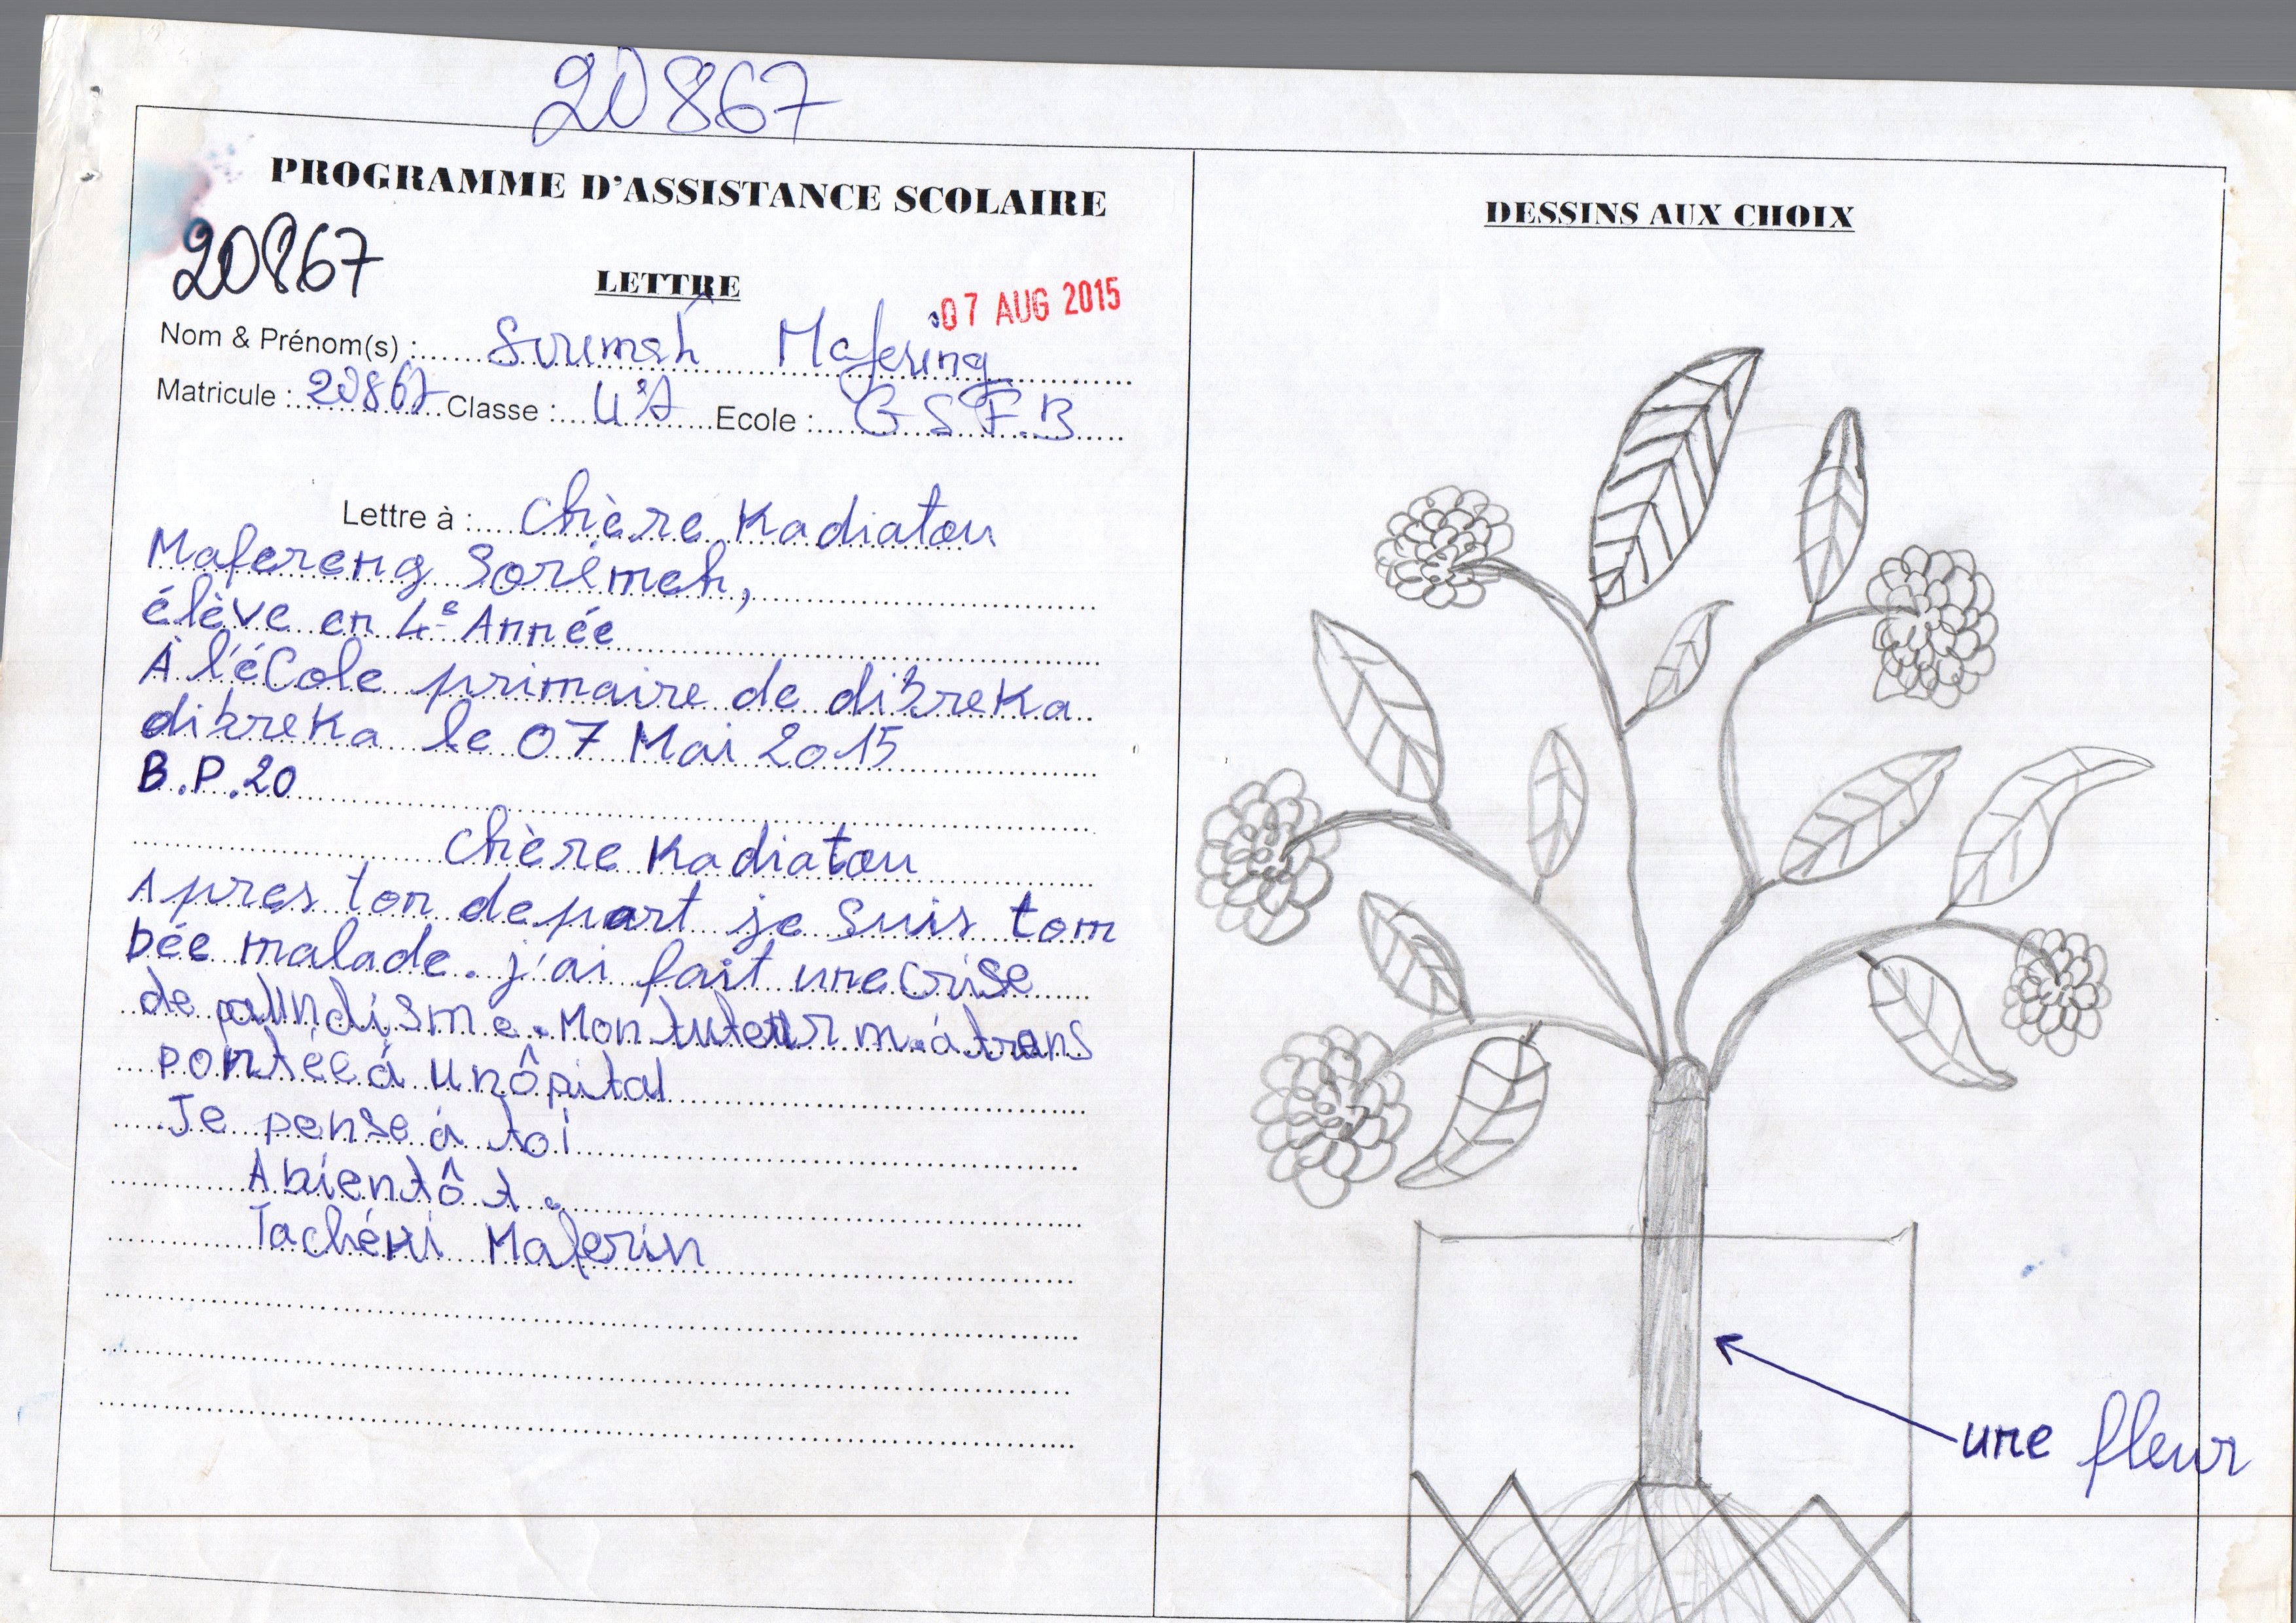 20867
PROGRAMME D'ASSISTANCE SCOLAIRE
20867
LETTRE
07 AUG 2015
Nom & Prénom(s) : Soumah Mafering
Matricule : 20867 Classe : 4è A Ecole : G S F.B
Lettre à : Chère Kadiatou
Mafereng Sorémeh,
élève en 4e Année
À l'éCole primaire de dibreka
dibreka le 07 Mai 2015
B.P.20
Chère Kadiatou
Apres ton depart je suis tom
bée malade. j'ai fait une crise
de palundisme. Mon tuteur m.à trans
portée á un ôpital
Je pense á toi
Abientôt.
Maferin
DESSINS AUX CHOIX
une fleur